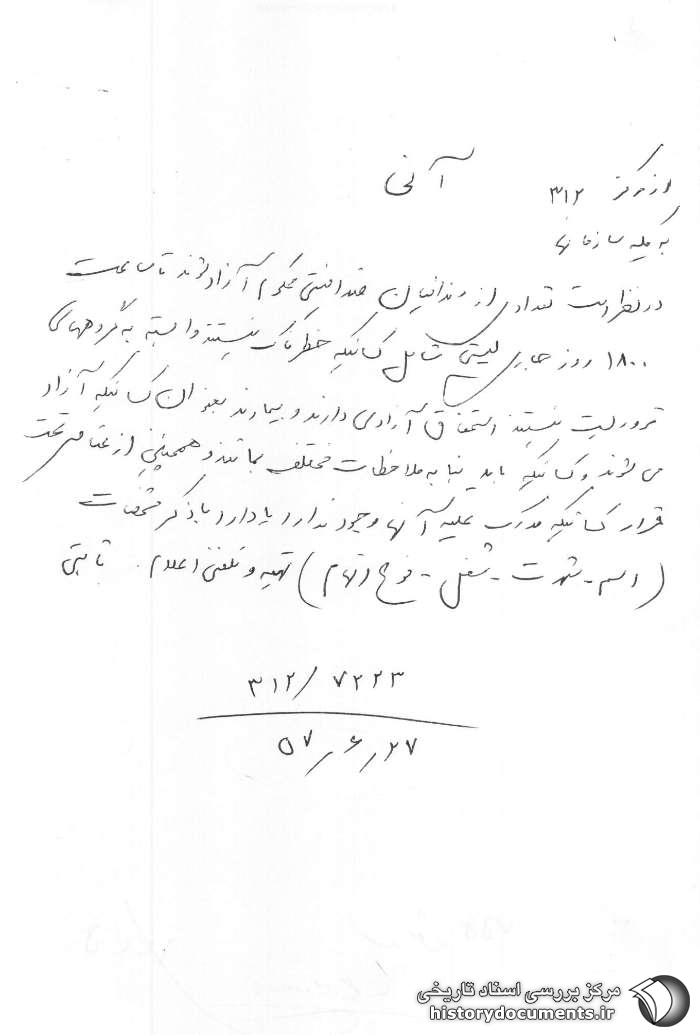 آنی
از مرکز ۳۱۲
به کلیه سازمانها
در نظر است تعدادی از زندانیان ضد امنیتی محکوم آزاد شوند تا ساعت
۱۸۰۰ روز جاری لیستی شامل کسانیکه خطرناک نیستند وابسته به گروههای
تروریست نیستند استحقاق آزادی دارند و بیمارند بعنوان کسانیکه آزاد
می شوند و کسانیکه باید بنا به ملاحظات مختلف بمانند و همچنین از عناصر تحت
قرار کسانیکه مدرک علیه آنها وجود ندارد یا دارد با ذکر مشخصات
(اسم - شهرت - شغل - نوع اتهام) تهیه و تلفنی اعلام. ثابتی
۳۱۲/۷۲۲۳
۵۷/۶/۲۷
مرکز بررسی اسناد تاریخی
historydocuments.ir